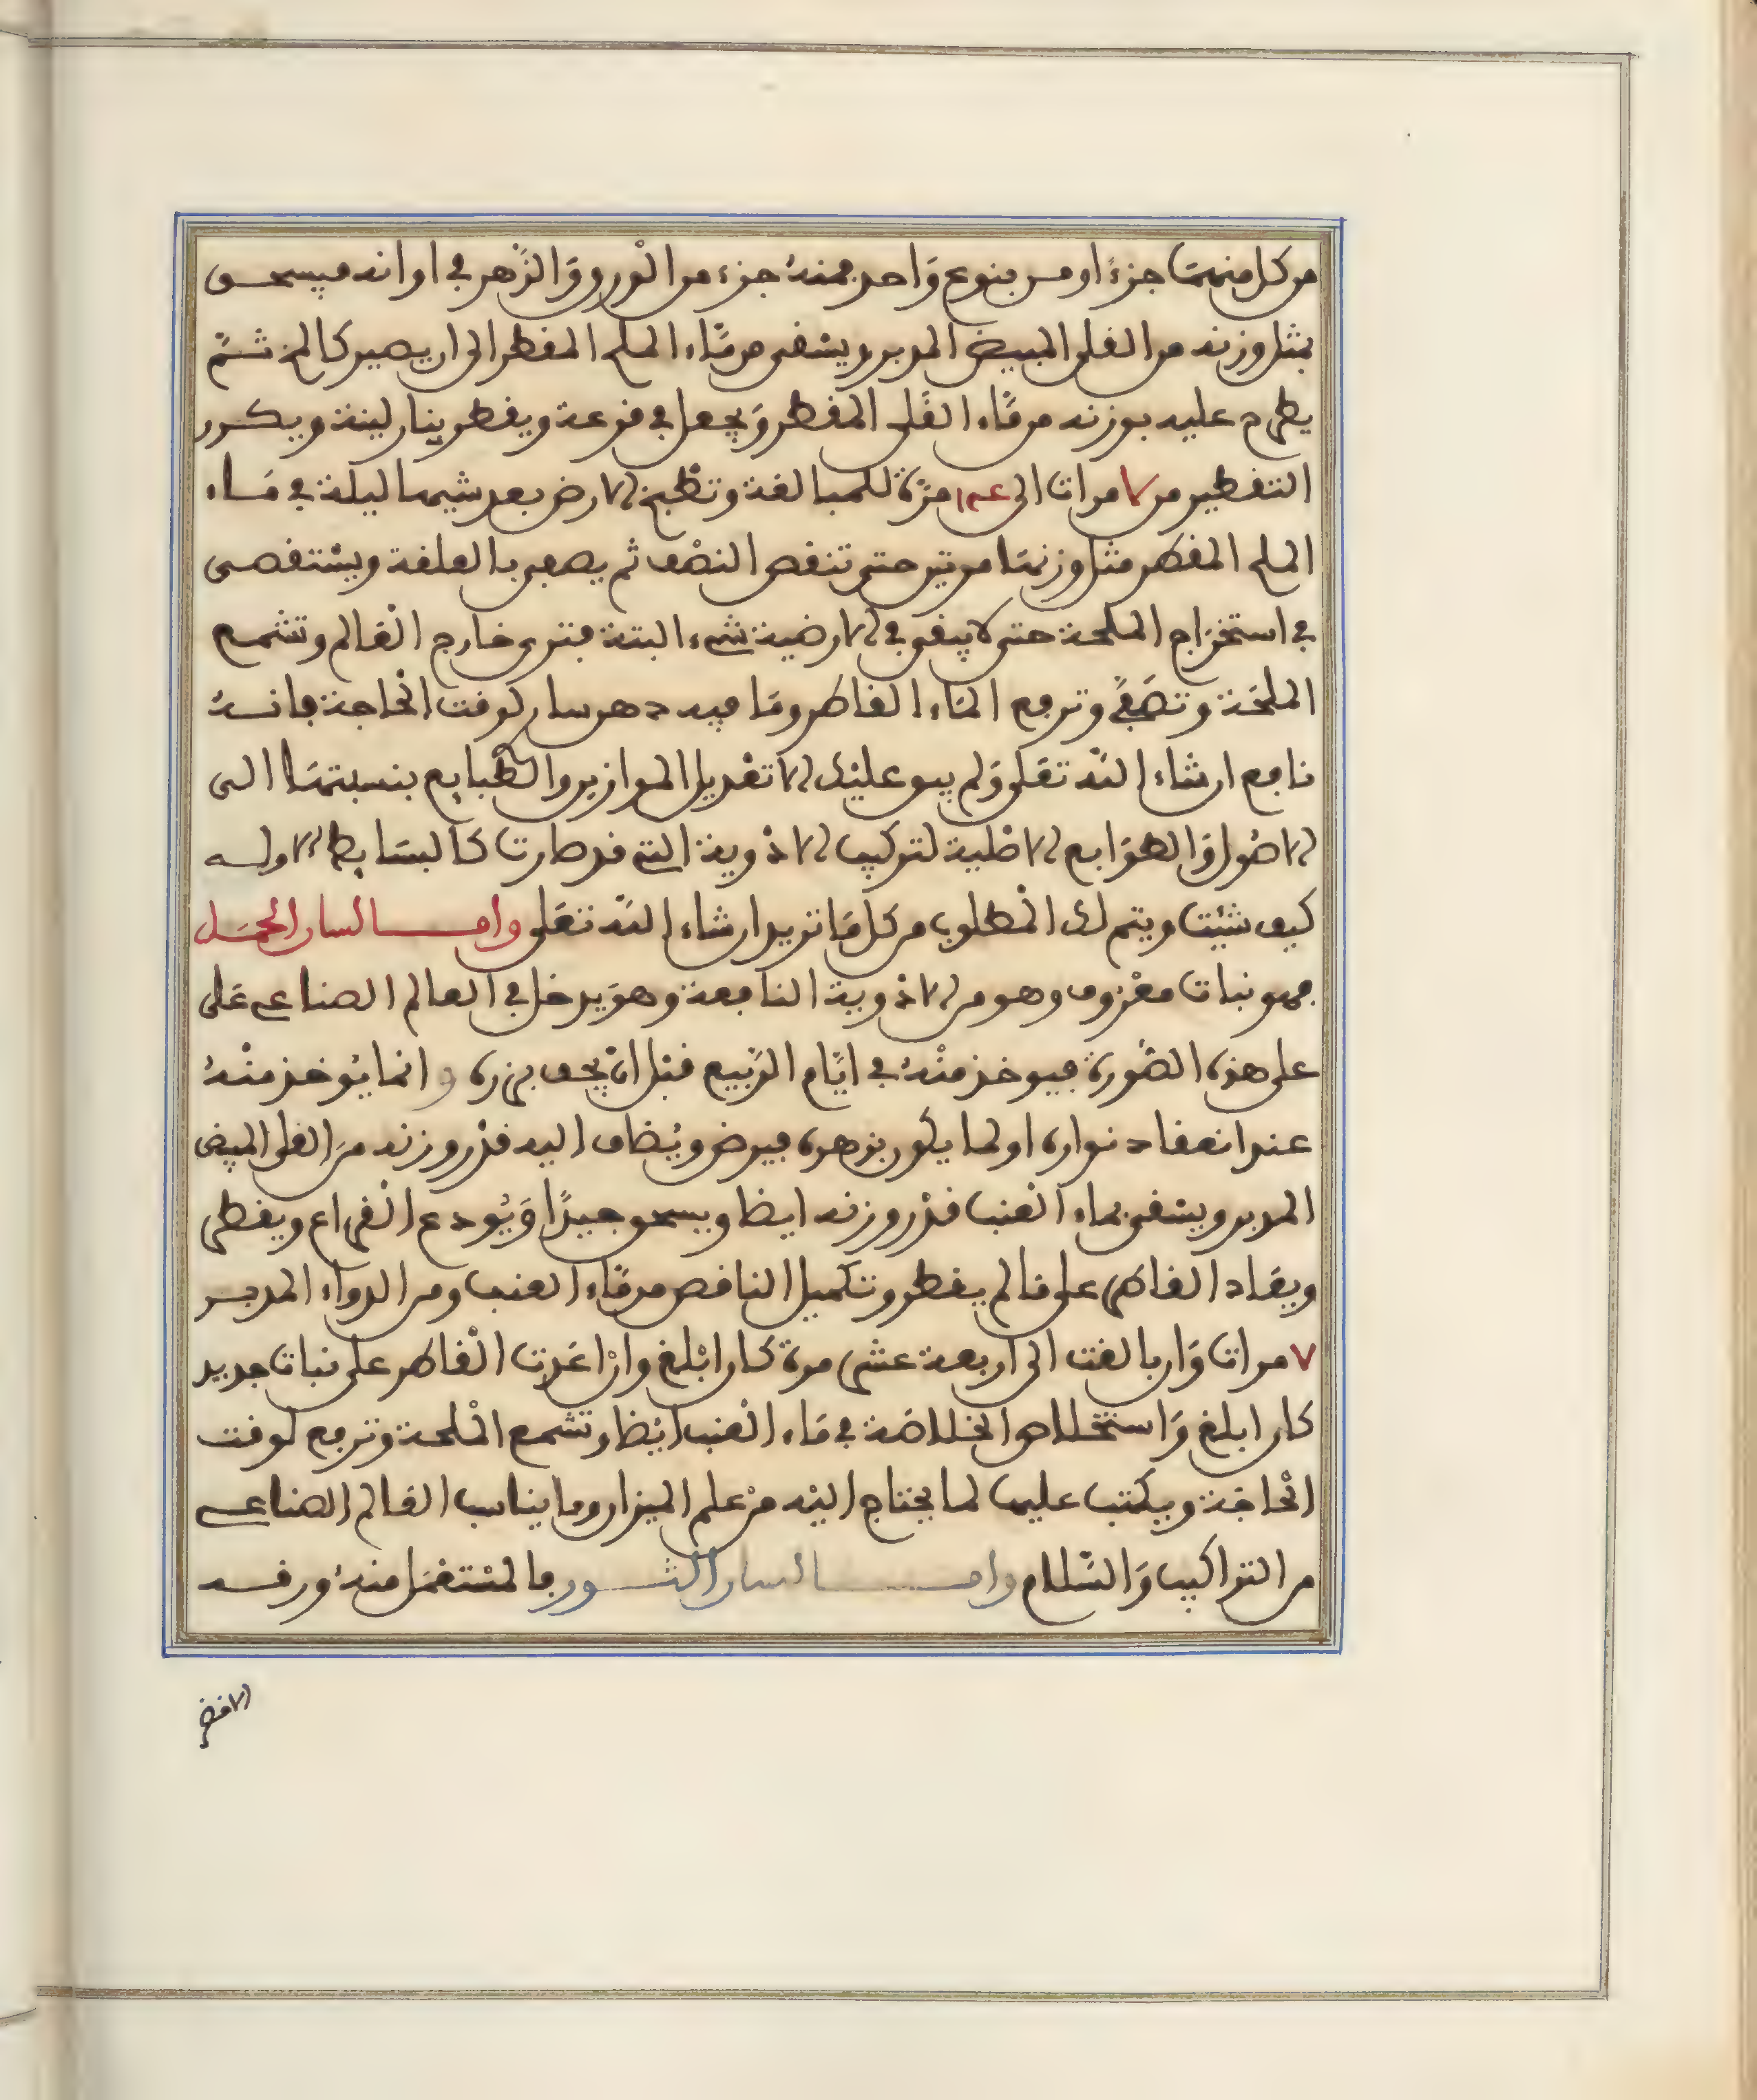 من كل منهما جزءًا ومن ينوع واحد فمنه جزء من الورق والزهر في اوانه فيسحق
بمثل وزنه من القلى المبيض المدبر ويسقى من ماء الملح المقطر الى ان يصير كالمخ ثم
يطرح عليه بوزنه من ماء القلى المقطر ويجعل في قرعة ويقطر بنار لينة ويكرر
التقطير من ٧ مرات الى مرة للمبالغة وتطبخ الارض بعد شيها ليلة في ماء
الملح المقطر مثل وزنها مرتين حتى تنقص النصف ثم يصفى بالعلقة ويستقصى
في استخراج الملحة حتى لا يبقى في الارضية شيء البتة فترى خارج العالم وتشمع
الملحة وتصفى وترفع الماء القاطر وما فيه دهن سار لوقت الحاجة فانه
نافع ان شاء الله تعلى ولم يبق عليك الا تعديل الموازين والطبايع بنسبتها الى
الاصول والطوابع الاصلية لتركيب الادوية التي قد صارت كالبسايط الاوله
كيف شئت ويتم لك المطلوب من كل ما تريد ان شاء الله تعلى وامــا لسان الحمل
فهو نبات معروف وهو من الادوية النافعة وهو يدخل في العالم الصناعي على
على هذه الصورة فيوخذ منه في ايام الربيع قبل ان يجف بزره وانما يوخذ منه
عند انعقاد نواره اولما يكون بزهره فيرض ويضاف اليه قدر وزنه من القلى المبيض
المدبر ويسقى بماء العنب قدر وزنه ايضا ويسحق جيدًا ويودع القراع ويقطر
ويعاد القاطر على ما لم يقطر وتكميل الناقص من ماء العنب ومن الدواء المدبر
٧ مرات وان بالغت الى اربعة عشر مرة كان ابلغ وان اعدت القاطر على نبات جديد
كان ابلغ واستخلاص الخلاصة في ماء العنب ايضا وتشمع الملحة وترفع لوقت
الحاجة ويكتب عليها لما يحتاج اليه من علم الميزان وما يناسب العالم الصناعي
من التراكيب والسلام وامــا لسان الثــور فالمستعمل منه ورقه
الاخضر